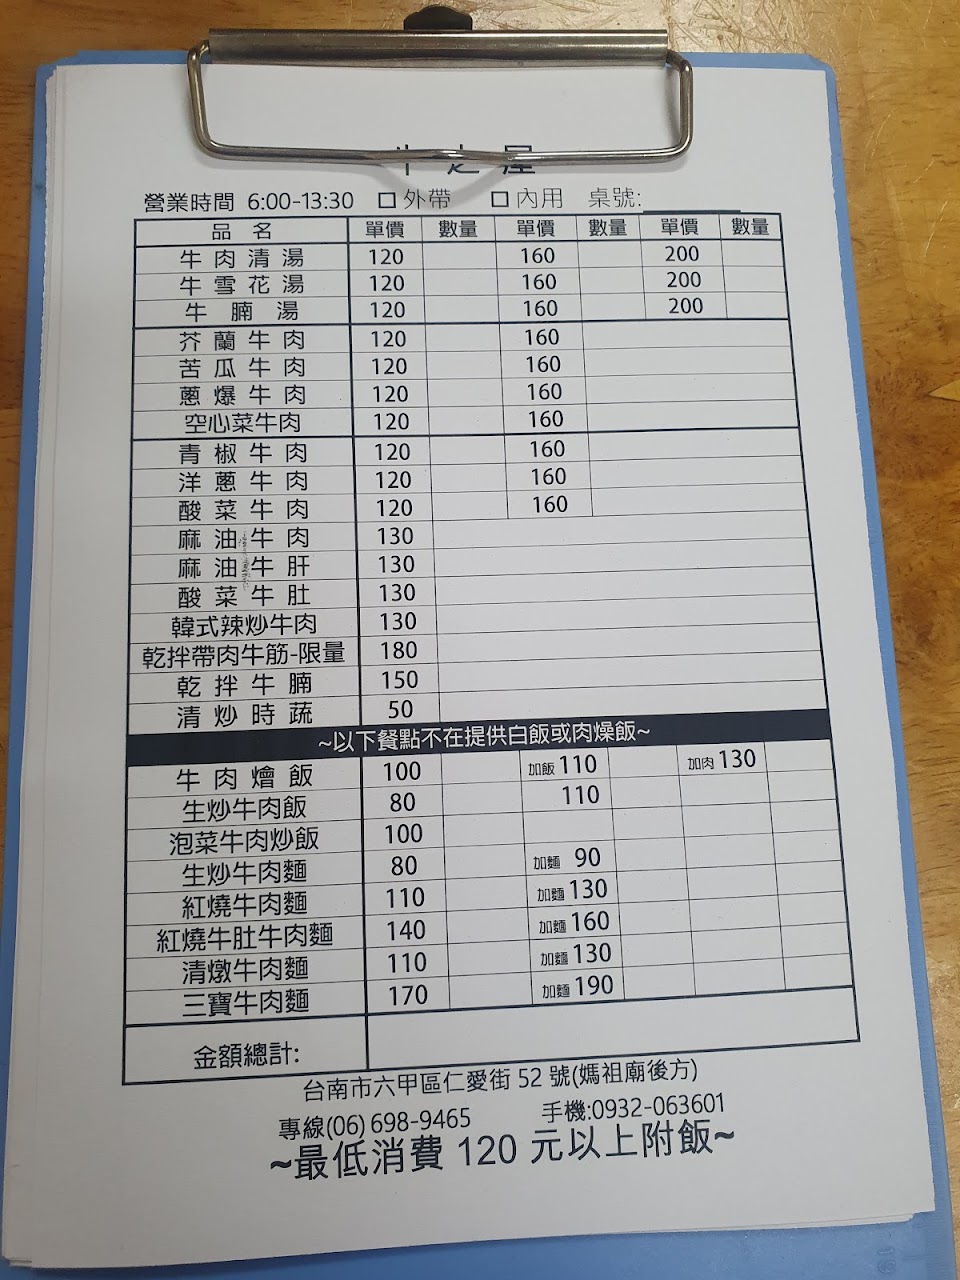 牛之屋
營業時間 6:00-13:30 □外帶 □內用 桌號:
品名 單價 數量 單價 數量 單價 數量
牛肉清湯 120 160 200
牛雪花湯 120 160 200
牛腩湯 120 160 200
芥蘭牛肉 120 160
苦瓜牛肉 120 160
蔥爆牛肉 120 160
空心菜牛肉 120 160
青椒牛肉 120 160
洋蔥牛肉 120 160
酸菜牛肉 120 160
麻油牛肉 130
麻油牛肝 130
酸菜牛肚 130
韓式辣炒牛肉 130
乾拌帶肉牛筋-限量 180
乾拌牛腩 150
清炒時蔬 50
~以下餐點不在提供白飯或肉燥飯~
牛肉燴飯 100 加飯 110 加肉 130
生炒牛肉飯 80 110
泡菜牛肉炒飯 100
生炒牛肉麵 80 加麵 90
紅燒牛肉麵 110 加麵 130
紅燒牛肚牛肉麵 140 加麵 160
清燉牛肉麵 110 加麵 130
三寶牛肉麵 170 加麵 190
金額總計:
台南市六甲區仁愛街 52 號(媽祖廟後方)
專線(06) 698-9465 手機:0932-063601
~最低消費 120 元以上附飯~